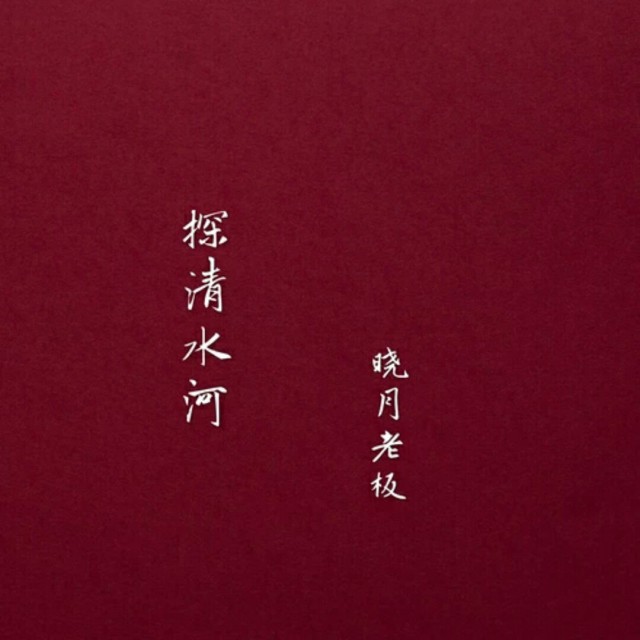 探清水河
晓月老板